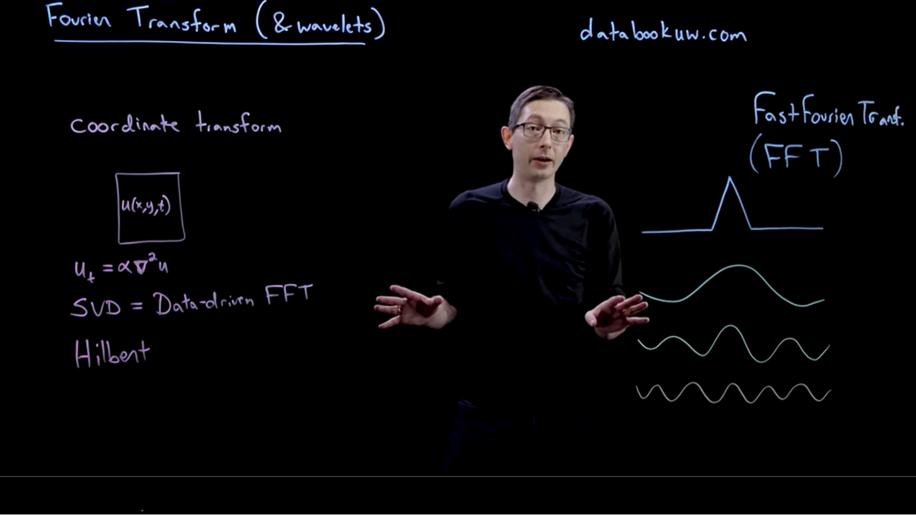 Fourier Transform (& wavelets)
databookuw.com
Coordinate transform
u(x,y,t)
uₜ = α∇²u
SVD = Data-driven FFT
Hilbert
Fast Fourier Tranf.
(FFT)